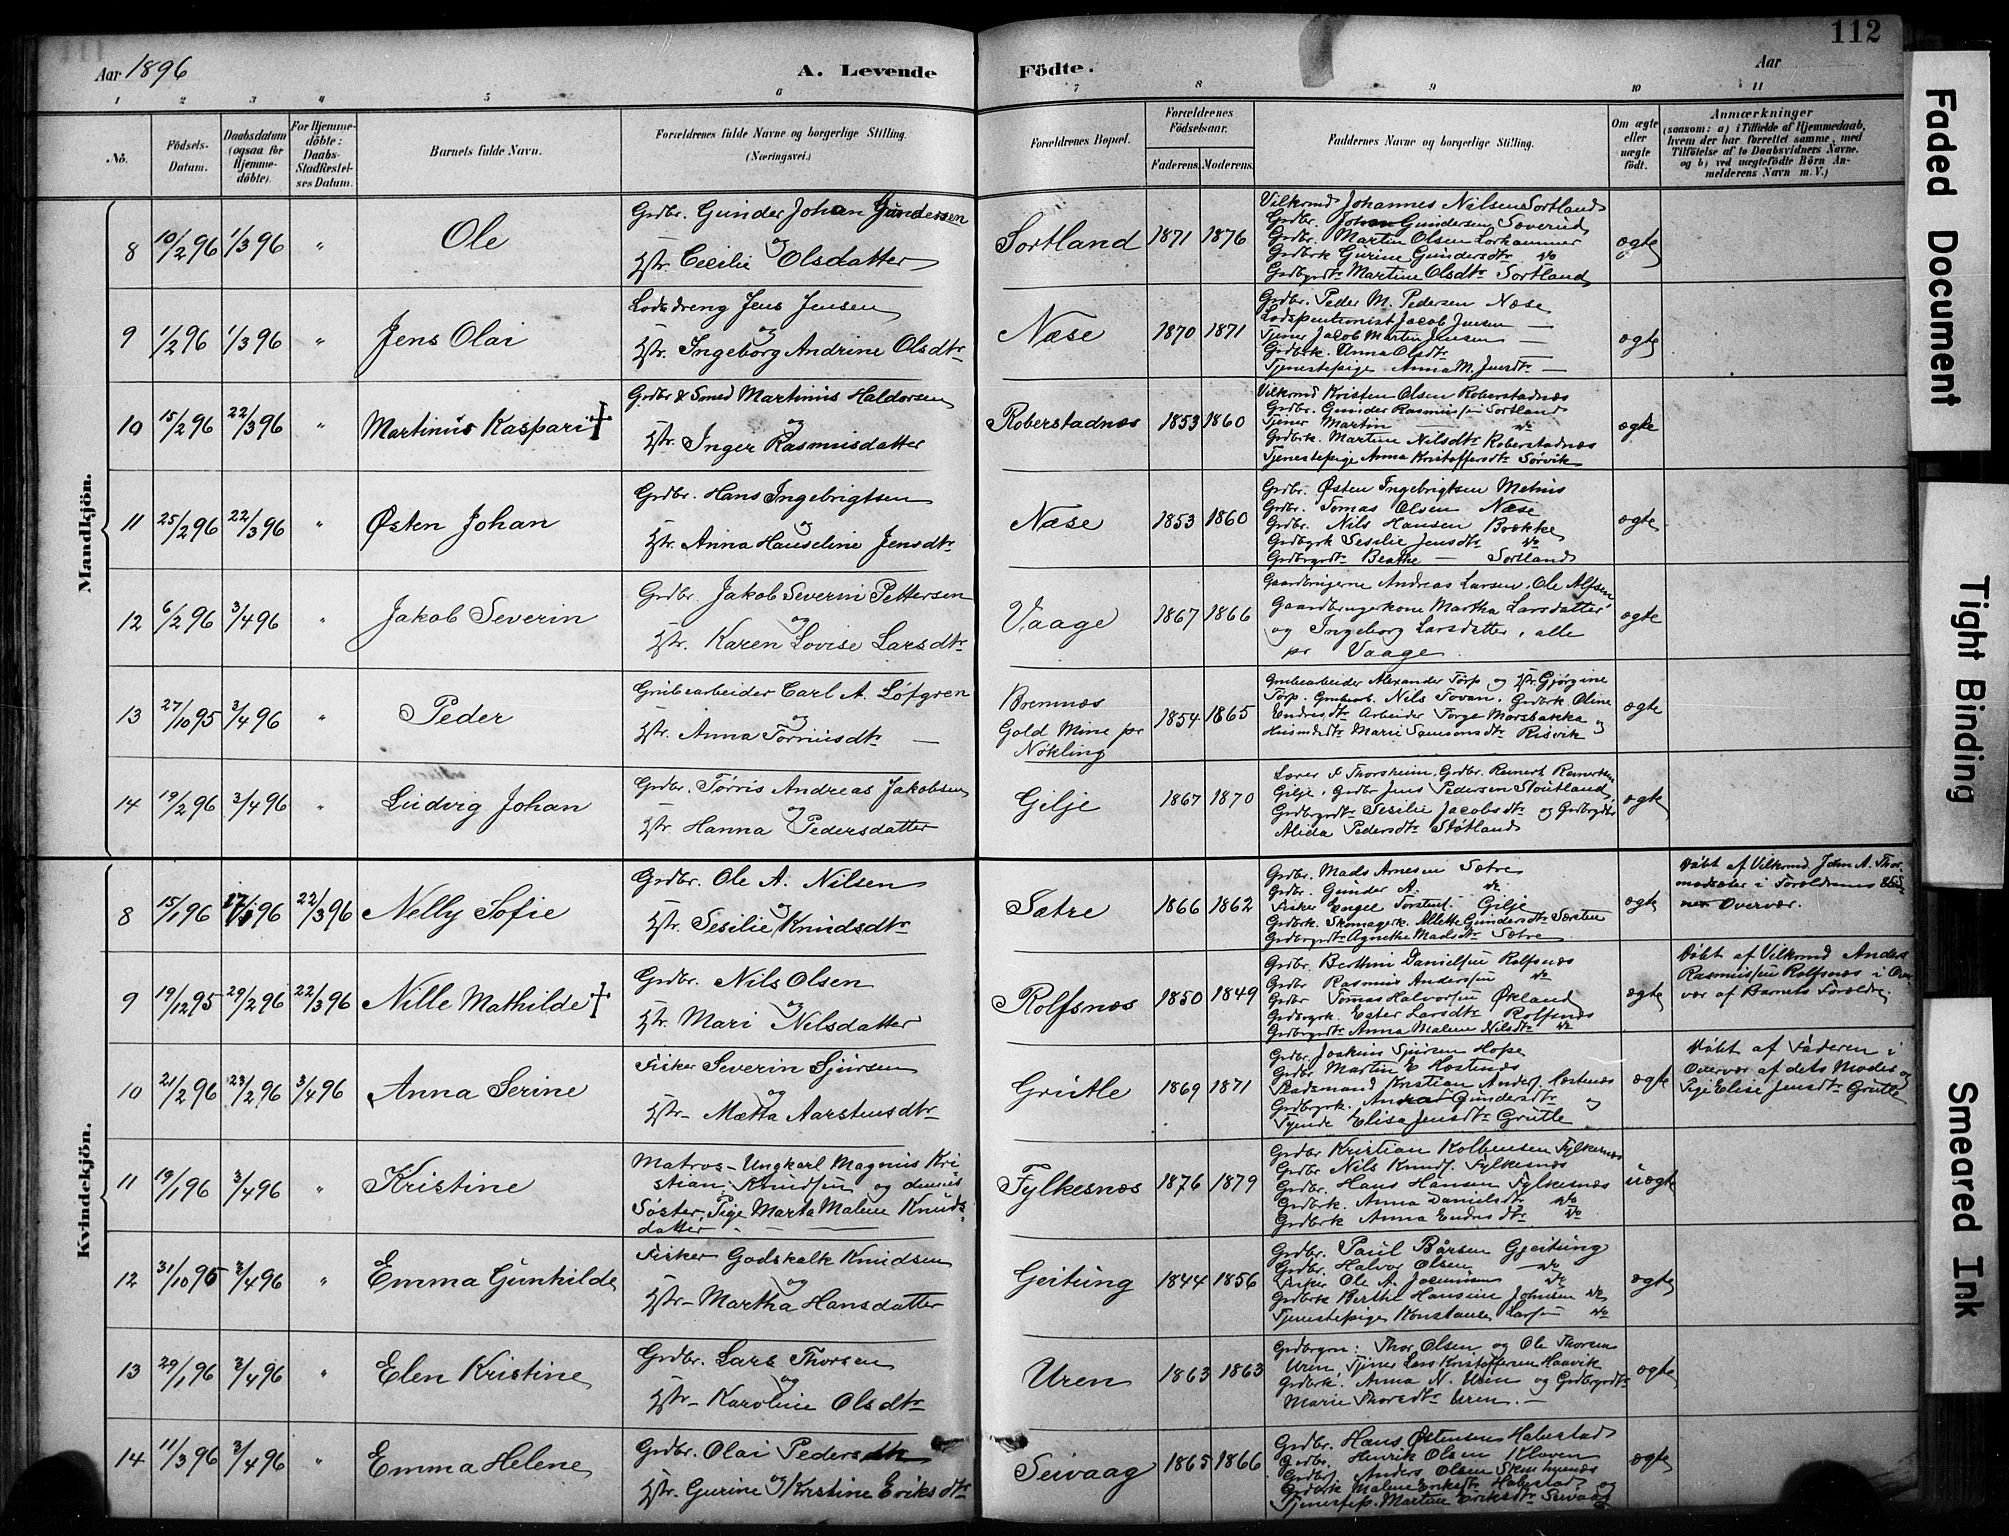 112
Aar 1896
A. Levende Födte.
Aar
1 2 3 4 5 6 7 8 9 10 11
No.
Födsels-Datum.
Daabsdatum (ogsaa for Hjemme-döbte).
For Hjemme-döbte: Daabs-Stadfæstel-ses Datum.
Barnets fulde Navn.
Forældrenes fulde Navne og borgerlige Stilling.
(Næringsvei.)
Forældrenes Bopæl.
Forældrenes Födselsaar.
Faderens. Moderens.
Faddernes Navne og borgerlige Stilling.
Om ægte eller uægte födt.
Anmærkninger
(saasom: a) i Tilfælde af Hjemmedaab, hvem der har forrettet samme, med Tilföielse af to Daabsvidners Navne, og b) ved uægtefödte Börn An-melderens Navn m. V.)
Mandkjön.
8 10/2 96 1/3 96 " Ole
Grdbr. Gunder Johan Gundersen
og
Hstr. Cecilie Olsdatter
Sortland 1871 1876
Vilkrmd Johannes Nilsen Sortland
Grdbr. Johan Gundersen Sæverud
Grdbr. Martin Olsen Lorhammer
Grdbrk Gurine Gundersdtr do
Grdbrgrdtr Martine Olsdtr Sortland
ægte
9 1/2 96 1/3 96 " Jens Olai
Lodsdreng Jens Jensen
og
Hstr. Ingeborg Andrine Olsdtr
Næse 1870 1871
Grdbr. Peder M. Pedersen Næse
Lodspentionist Jacob Jensen —
Tjener Jacob Martin Jensen —
Grdbrk. Anna Olsdtr —
Tjenestepige Anna M. Jensdtr —
ægte
10 15/2 96 22/3 96 " Martinus Kaspari †
Grdbr & Smed Martinus Haldorsen
og
Hstr. Inger Rasmusdatter
Roberstadnæs 1853 1860
Vilkrmd Kristen Olsen Roberstadnæs
Grdbr. Gunder Rasmussen Sortland
Tjener Martin — do
Grdbrk. Martine Nilsdtr Roberstadnæs
Tjenestepige Anna Kristoffersdtr Sørvik
ægte
11 25/2 96 22/3 96 " Østen Johan
Grdbr. Hans Ingebrigtsen
og
Hstr. Anna Hanseline Jensdtr
Næse 1853 1860
Grdbr. Østen Ingebrigtsen Mehus
Grdbr. Tomas Olsen Næse
Grdbr. Nils Hansen Bække
Grdbrgrk Sesilie Jensdtr do
Grdbrgrdtr Beathe — Sortland
ægte
12 6/2 96 3/4 96 " Jakob Severin
Grdbr. Jakob Severin Pettersen
og
Hstr. Karen Lovise Larsdtr
Vaage 1867 1866
Gaardbrugerne Andreas Larsen, Ole Alfsen
Gaardbrugerkone Martha Larsdatter
og Ingeborg Larsdatter, alle
pr Vaage.
ægte
13 27/10 95 3/4 96 " Peder
Grubearbeider Carl A. Løfgren
og
Hstr. Anna Torriusdtr —
Bremnæs
Gold Mine pr
Nøkling
1854 1865
Grubearbeider Alexander Torp og Hstr. Gjørgine
Torp. Grubearb. Nils Tovan, Grdbrk Oline
Endresdtr Arbeider Torge Morsbakka og
Husmdsdtr Marie Samsonsdtr Risvik
ægte
14 19/2 96 3/4 96 " Ludvig Johan
Grdbr. Tørris Andreas Jakobsen
og
Hstr. Hanna Pedersdatter
Gilje 1867 1870
Lærer Thorsheim. Grdbr. Reinert Reinertsen
Gilje, Grdbr Jens Pedersen Støutland,
Grdbrgrdtr Sesilie Jacobsdtr og Grdbrgdtr
Alida Pedersdtr Støtland
ægte
Kvindekjön.
8 15/1 96 17/1 96 22/3 96 Nelly Sofie
Grdbr. Ole A. Nilsen
og
Hstr. Sesilie Knudsdtr
Sætre 1866 1862
Grdbr. Mads Arnesen Sætre
Grdbr. Gunder A. do
Fisker Engel Torstens. Gilje
Grdbrk. Skomagerk. Allette Gundersdtr Særsten
Grdbrgrdtr Agnethe Madsdtr Sætre
ægte
Døbt af Vilkrmd. John A. Thor-
modsæter i Forældrenes
Overvær.
9 19/12 95 29/2 96 22/3 96 Nille Mathilde †
Grdbr. Nils Olsen
og
Hstr. Mari Nilsdatter
Rolfsnæs 1850 1849
Grdbr. Berthini Danielsen Rolfsnæs
Grdbr Rasmus Andersen do
Grdbr Tomas Halvorsen Økland
Grdbrgrk. Ester Larsdtr Rolfsnæs
Grdbrgrdtr Anna Malene Nilsdtr do
ægte
Døbt af Vilkrmd Anders
Rasmussen Rolfsnæs i Over
vær af Barnets Forældre.
10 21/2 96 23/2 96 3/4 96 Anna Serine
Fisker Severin Sjursen
og
Hstr. Mætta Aarstensdtr
Grutle 1869 1871
Grdbr. Joakim Sjursen Hope
Grdbr Martin E Hæstnæs
Baadsmand Kristian Anders. Hæstnæs
Grdbrgrk. Gundersdtr og
Tyende Elisa Jensdtr Grutle
ægte
Døbt af Faderen i
Overvær af dets Moder og
Pige Elise Jensdtr Grutle
11 19/1 96 3/4 96 " Kristine
Matros – Ungkarl Magnus Kri-
stian Knudsen og dennes
Søster, Pige Marta Malene Knuds-
datter —
Fylkesnæs 1876 1879
Grdbr Kristian Kolbensen Fylkesnæs
Grdbr Nils Knuds. Fylkesnæs
Grdbr. Hans Hansen Fylkesnæs
Grdbrk. Anna Danielsdtr do
Grdbrk Anna Endresdtr do
uægte
12 31/10 95 3/4 96 " Emma Gunhilde
Fisker Godskalk Knudsen
og
Hstr. Martha Hansdatter
Geitung 1844 1856
Grdbr. Paul Børsen Gjeitung
Grdbr. Halvor Olsen do
Fisker Ole A. do
Grdbrk Berthe Hansine Johnsen do
Tjenestepige Konstanse Larsen do
ægte
13 29/1 96 3/4 96 " Elen Kristine
Grdbr. Lars Thorsen
og
Hstr. Karoline Olsdtr
Uren 1863 1863
Grdbrgrn: Thor Olsen og Ole Thorsen
Uren, Tjener Lars Kristoffersen Haavik
Grdbrk. Anna N. Uren og Grdbrgrdtr
Marie Thorsdtr Uren. —
ægte
14 11/3 96 3/4 96 " Emma Helene
Grdbr. Olai Pedersen
og
Hstr. Gurine Kristine Eriksdtr
Seivaag 1865 1866
Grdbr. Hans Østensen Habestad
Grdbr. Henrik Olsen Kloven
Grdbr. Anders Olsen
Grdbrk Malene Eriksdtr Habestad og
Tjenestep. Martine Eriksdtr Seivaag
ægte
Faded Document
Tight Binding
Smeared Ink